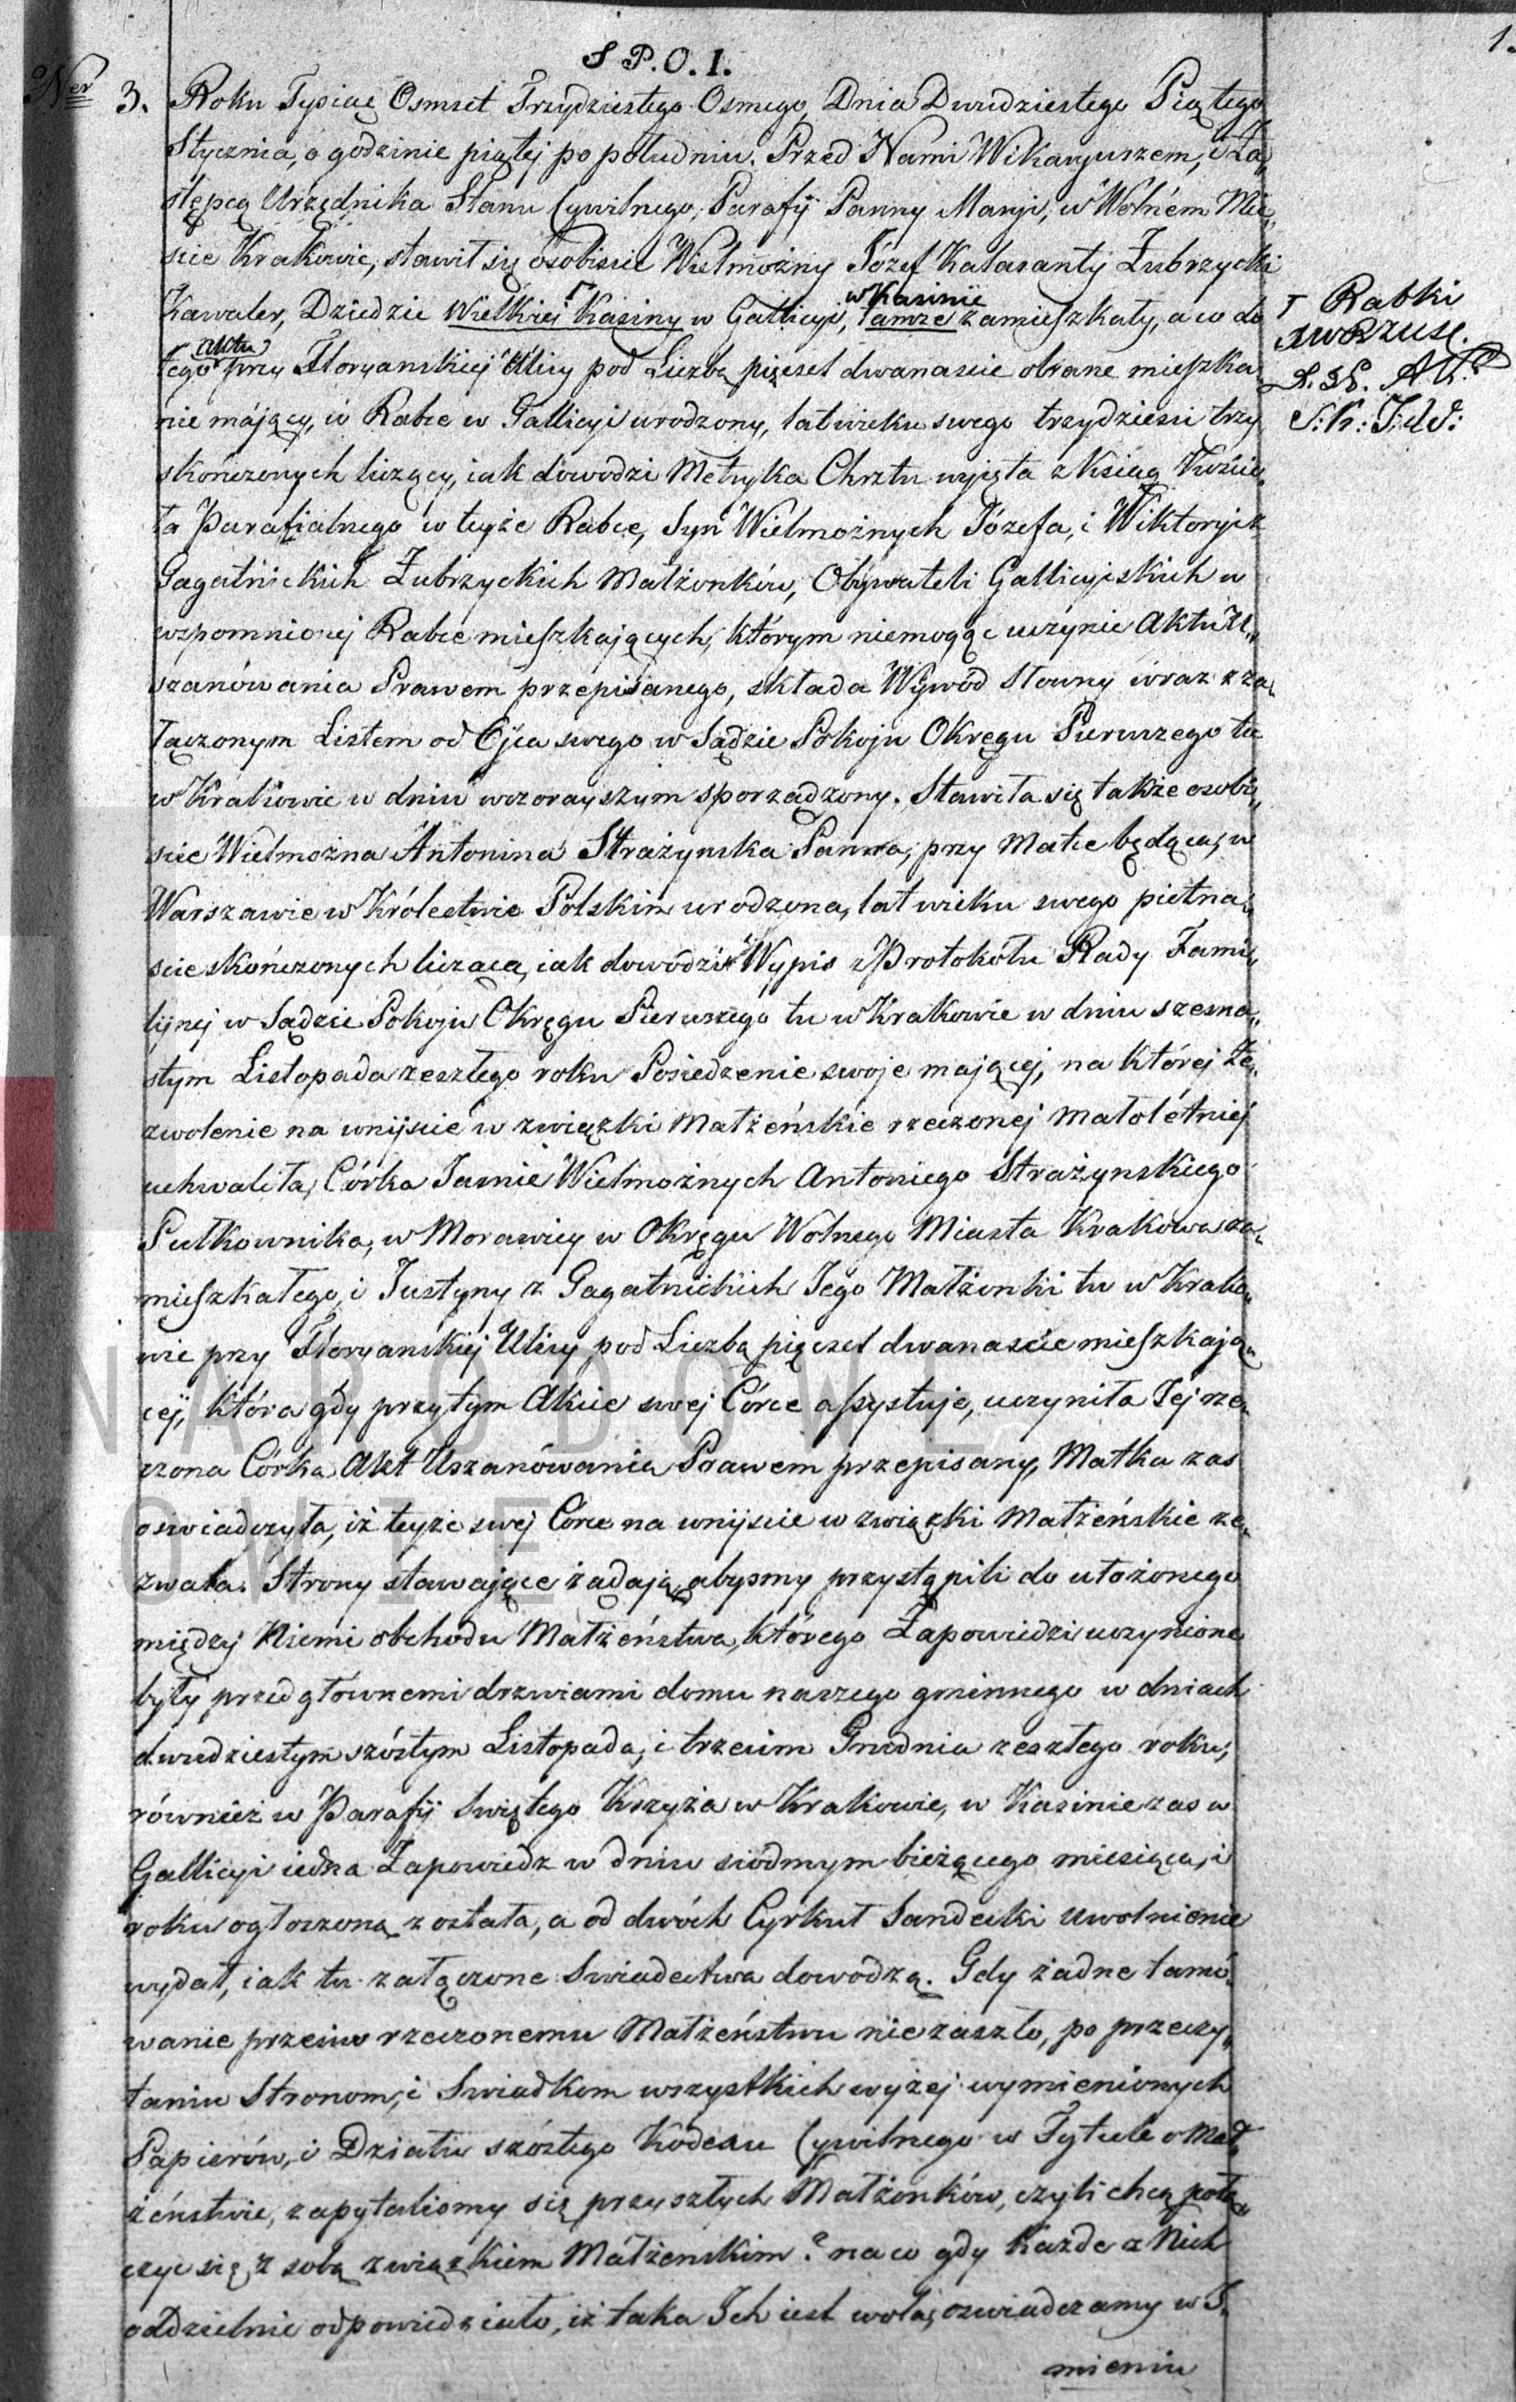 S P. O. I.
1.
Ner 3. Roku Tysiąc Osmset Trzydziestego Osmego, Dnia Dwudziestego Piątego
Stycznia, o godzinie piątej po południu. Przed Nami Wikaryuszem, i Za„
stępcą Urzędnika Stanu Cywilnego, Parafij Panny Maryi, w Wolném Mie„
scie Krakowie, stawił się osobiscie Wielmożny Józef Kalasanty Zubrzycki
Kawaler, Dziedzic Wielkiej Kasiny w Gallicyi, tamże zamieszkały, a co do
w Kasinie
┌ Rabki
tego przy Floryanskiej Ulicy pod Liczbą pięcset dwanascie obrane mieszka„
Aktu
nie mający, w Rabce w Gallicyi urodzony, lat wieku swego trzydziesci trzy
skończonych liczący, iak dowodzi Metryka Chrztu wyjęta z Ksiąg Koscio„
ła Parafialnego w tejże Rabce, Syn Wielmożnych Józefa, i Wiktoryi z
Gagatnickich Zubrzyckich Małżonków, Obywateli Gallicyiskich w
wspomnionej Rabce mieszkających, którym niemogąc uczynic Aktu U„
szanówania Prawem przepisanego, składa Wywód Słowny wraz z za„
łączonym Listem od Ojca swego w Sądzie Pokoju Okręgu Pierwszego tu
w Krakowie w dniu wczorayszym sporządzony. Stawiła się także osobi„
scie Wielmożna Antonina Strażynska Panna, przy Matce będąca, w
Warszawie w Królestwie Polskim urodzona, lat wieku swego pietna„
scie skończonych licząca, iak dowodzi Wypis z Protokółu Rady Fami„
lijnej w Sądzie Pokoju Okręgu Pierwszego tu w Krakowie w dniu szesna„
stym Listopada zeszłego roku Posiedzenie swoje mającej, na której Ze„
zwolenie na wnijscie w związki Małżeńskie rzeczonej Małolétniej
uchwaliła, Córka Jasnie Wielmożnych Antoniego Strażynskiego
Pułkownika, w Morawicy w Okręgu Wolnego Miasta Krakowa za„
mieszkałego, i Justyny z Gagatnickich Jego Małżonki tu w Krako„
wie przy Floryanskiej Ulicy pod Liczbą pięcset dwanascie mieszkają„
cej, która gdy przytym Akcie swej Córce assystuje, uczyniła Jej rze„
czona Córka Akt Uszanówania Prawem przepisany, Matka zas
oswiadczyła, iż tejże swej Córce na wnijscie w związki Małżeńskie ze„
zwala. Strony stawające żądają, abysmy przystąpili do ułożonego
między Niemi obchodu Małżeństwa, którego Zapowiedzi uczynione
były przed głównemi drzwiami domu naszego gminnego w dniach
dwudziestym szóstym Listopada, i trzecim Grudnia zeszłego roku,
równieź w Parafij Swiętego Krzyża w Krakowie, w Kasinie zas w
Gallicyi iedna Zapowiedz w dniu siódmym bieżącego miesiąca, i
roku ogłoszoną została, a od dwóch Cyrkuł Sandecki uwolnienie
wydał, iak tu załączone Swiadectwa dowodzą. Gdy żadne tamo„
wanie przeciw rzeczonemu Małżeństwu niezaszło, po przeczy„
taniu Stronom, i Swiadkom wszystkich wyżej wymienionych
Papierów, i Działu szóstego Kodexu Cywilnego w Tytule o Mał„
żeństwie, zapytalismy się przyszłych Małżonków, czyli chcą połą„
czyc się z sobą związkiem Małżenskim? na co gdy Każde z Nich
oddzielnie odpowiedziało, iż taka Ich iest wola, oswiadczamy w I„
mieniu